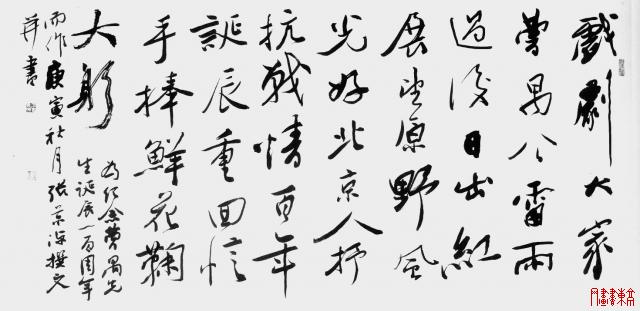 戲劇大家
曹禺公雷雨
過後日出紅
展望原野風
光好北京人抒
抗戰情百年
誕辰重回憶
手捧鮮花鞠
大躬
為紀念曹禺先
生誕辰一百周年
而作庚寅秋月張景深撰文
并書